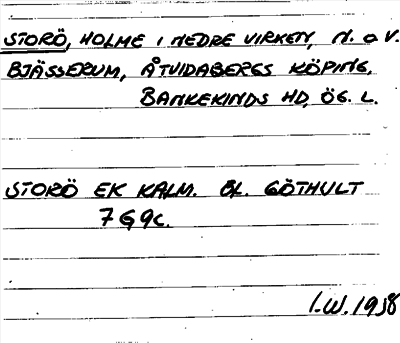 STORÖ, HOLME I NEDRE VIRKEN, N. O V.
BJÄSSERUM, ÅTVIDABERGS KÖPING,
BANKEKINDS HD, ÖG. L.
STORÖ EK KALM. BL. GÖTHULT
7 G 9c.
I.W. 1958